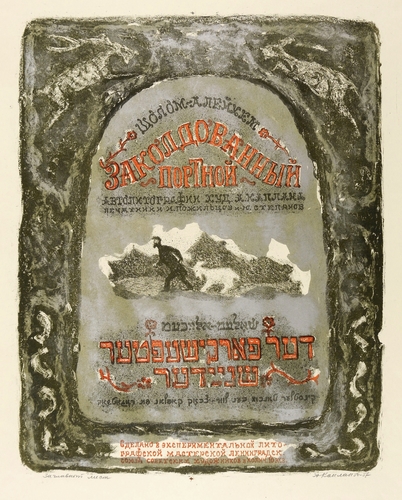 ШОЛОМ-АЛЕЙХЕМ
ЗАКОЛДОВАННЫЙ
ПОРТНОЙ
АВТОЛИТОГРАФИИ ХУД. А. КАПЛАНА
ПЕЧАТНИКИ И. ПОЖИЛЬЦОВ и Ю. СТЕПАНОВ
שלום-עליכעם
דער פארכישעפטער
שניידער
СДЕЛАНО В ЭКСПЕРИМЕНТАЛЬНОЙ ЛИТО-
ГРАФСКОЙ МАСТЕРСКОЙ ЛЕНИНГРАДСК.
СОЮЗА СОВЕТСКИХ ХУДОЖНИКОВ